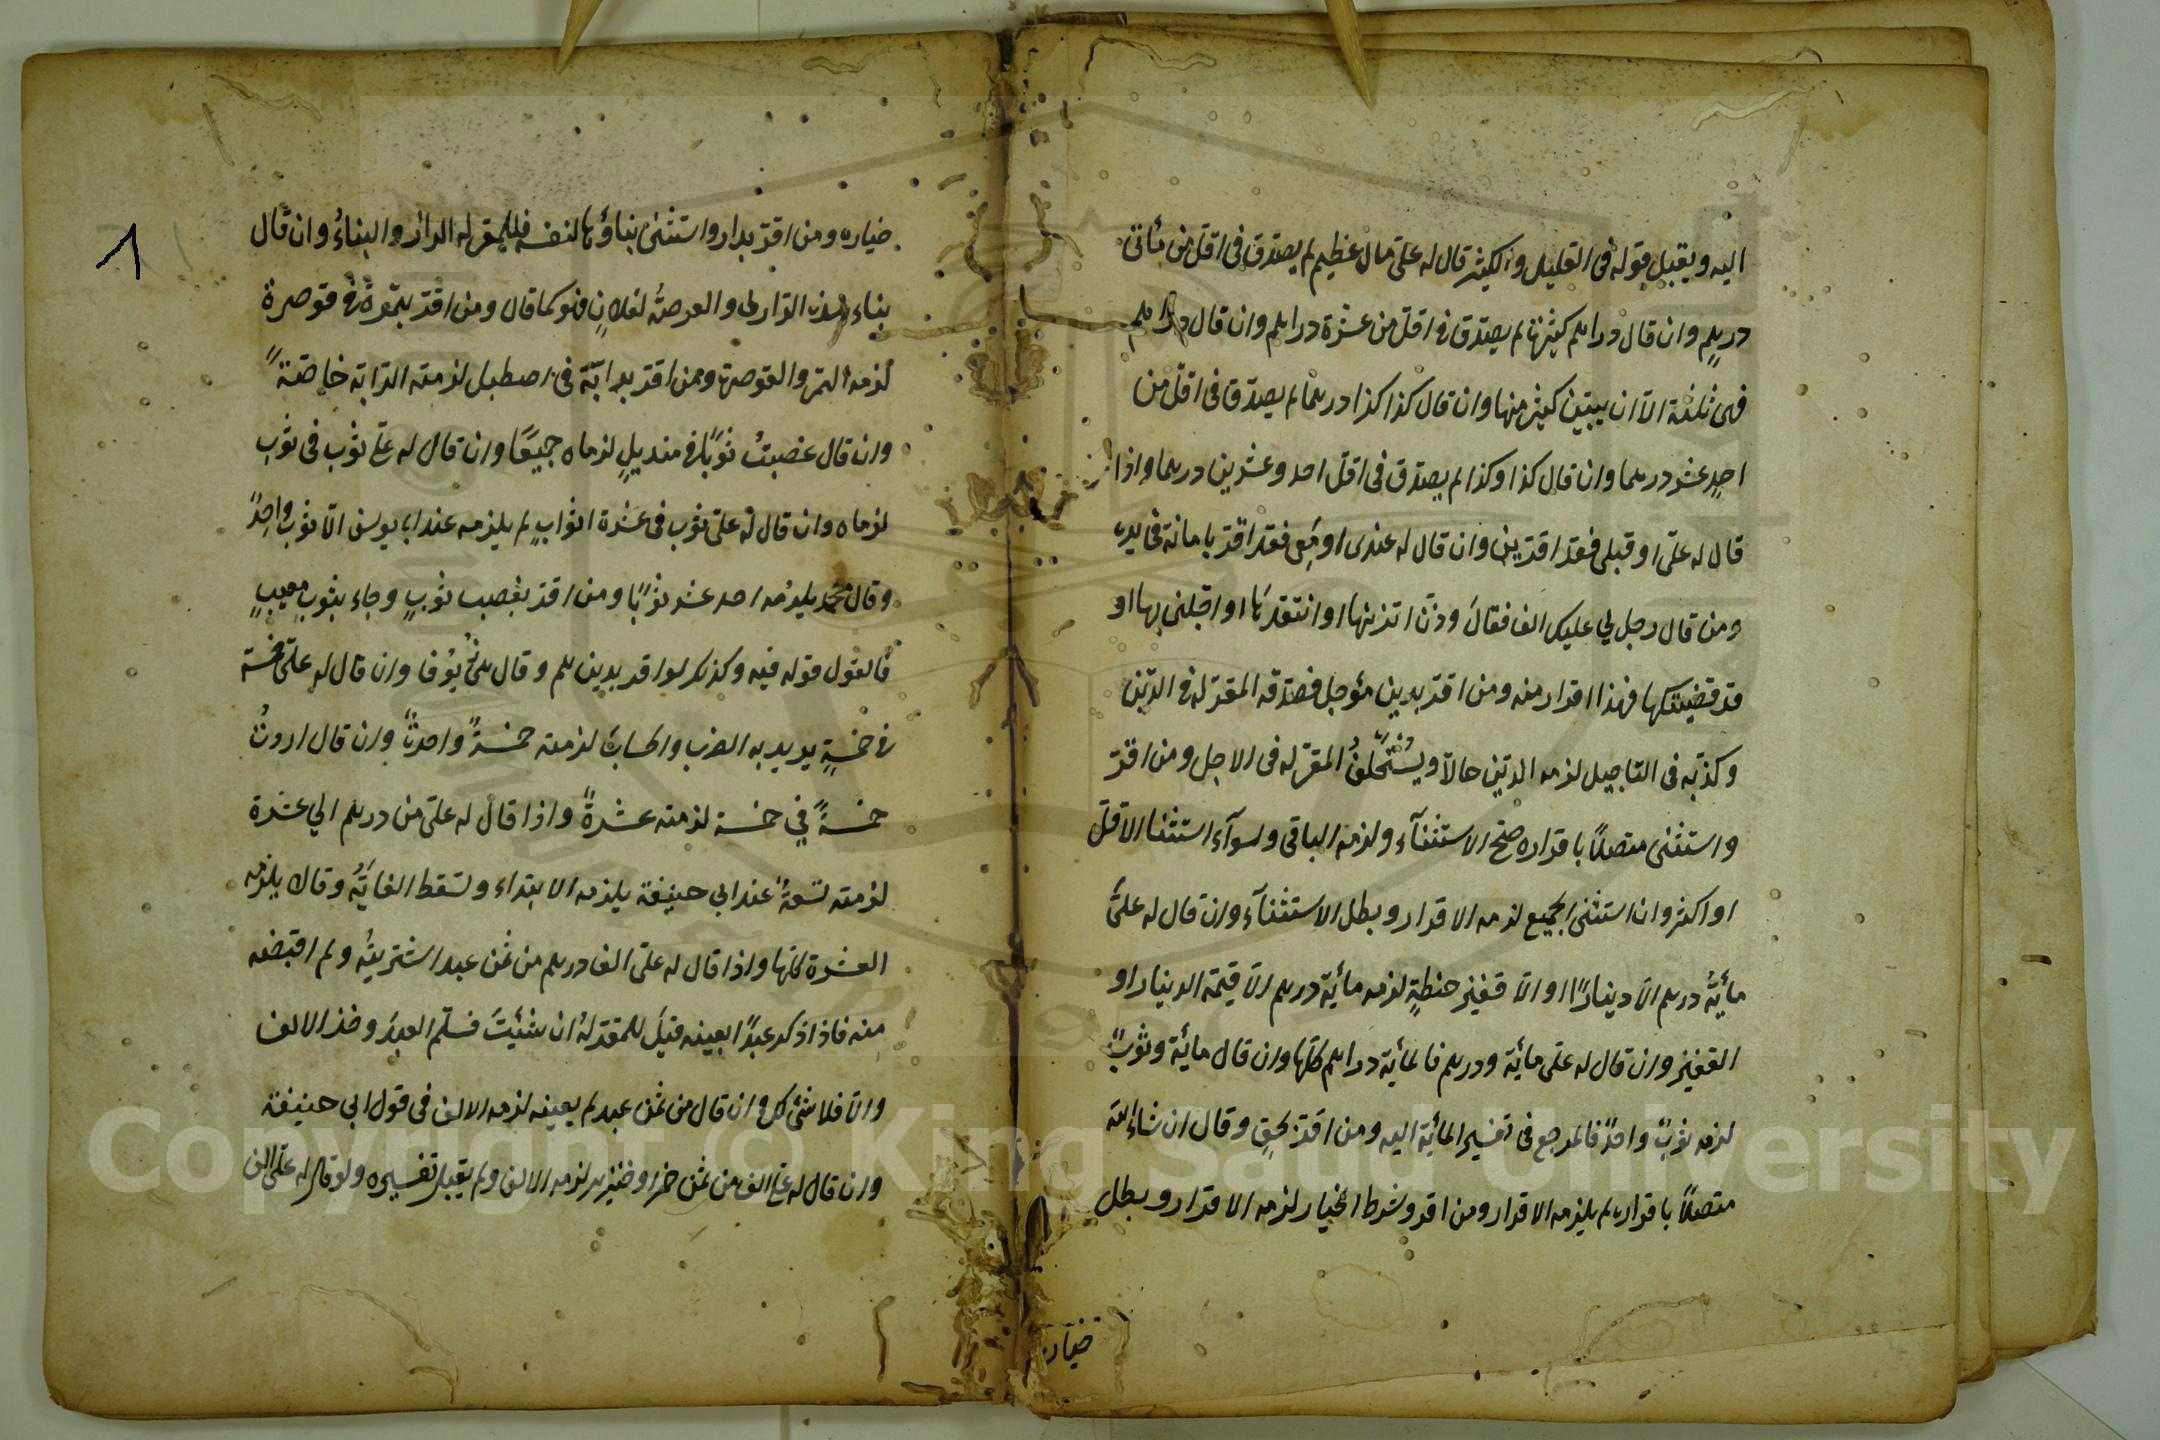 اليه ويقبل قوله فى القليل والكثير قال له علىّ مال عظيم لم يصدّق فى اقلّ من مأتى
درهمٍ وان قال دراهم كثيرة لم يصدّق فى اقلّ من عشرة دراهم وان قال دراهم
فهى ثلثة الاّ ان يبيّن كثير منها وان قال كذا كذا درهما لم يصدّق فى اقلّ من
احد عشر درهما وان قال كذا وكذا لم يصدّق فى اقلّ احد وعشرين درهما واذا
قال له علىّ او قبلى فقد اقرّ بدين وان قال له عندى او معى فقد اقرّ بامانة فى يده
ومن قال رجل لي عليك الف فقال وزنّ اتزنها او انتقدها او اجّلنى بها او
قد قضيتكها فهذا اقرار منه ومن اقرّ بدين مؤجل فصدّقه المقرّ له فى الدّين
وكذّبه فى التاجيل لزمه الدّين حالاّ ويُسْتَحْلَفُ المقرّ له فى الاجل ومن اقرّ
واستثنى متصلاً باقراره صحّ الاستثنآء ولزمه الباقى وسوآء استثنا الاقلّ
او اكثر وان استثنى الجميع لزمه الاقرار وبطل الاستثنآء وان قال له علىَّ
مأيةُ درهم الاّ دينارًا او الاّ قفيز حنطةٍ لزمه مأية درهم الاّ قيمة الدينار او
القفيز وان قال له على مائة ودرهم فالمأية دراهم كلّها وان قال مائة وثوبٌ
لزمه ثوبٌ واحدٌ فالمرجع فى تفسير المأية اليه ومن اقرّ بحقٍ وقال ان شاء الله
متصلاً باقراره لم يلزمه الاقرار ومن اقر وشرط الخيار لزمه الاقرار وبطل
خياره
خياره ومن اقرّ بدار واستثنى بناؤها لنفسه فللمقر له الدار والبناءُ وان قال
بناء هذه الدّار لى والعرصةُ لفلانٍ فهو كما قال ومن اقرّ بتمرةٍ فى قوصرة
لزمه التمر والقوصرة ومن اقرّ بدابّة فى اصطبل لزمته الدّابة خاصّةً
وان قال غصبتُ ثوبًا فى منديلٍ لزماه جميعًا وان قال له علىّ ثوب فى ثوبٍ
لزماه وان قال له علىّ ثوب فى عشرة اثوابٍ لم يلزمه عند ابى يوسف الاّ ثوب واحدٌ
وقال محمّد يلزمه احد عشر ثوبًا ومن اقرّ بغصب ثوبٍ وجاء بثوبٍ معيبٍ
فالقول قوله فيه وكذلك لو اقر بدراهم وقال هى زيوفا وان قال له علىّ خمسة
فى خمسةٍ يريد به الضرب والحساب لزمته خمسةً واحدةً وان قال اردتُ
خمسةً فى خمسة لزمته عشرةً واذا قال له علىّ من درهم الى عشرة
لزمته تسعةُ عند ابى حنيفة يلزمه الابتداء وتسقط الغايَةُ وقالا يلزمه
العشرة كلّها واذا قال له علىّ الف درهم من ثمن عبد اشتريتُه ولم اقبضه
منه فاذا ذكر عبدًا بعينه قيل للمقرّ لهُ ان شئتَ فسلّم العبدَ وخذ الالف
والاّ فلا شئ لك وان قال من ثمن عبد لم يعينه لزمه الالف فى قول ابى حنيفة
وان قال له علىّ الف من ثمن خمر او خنزير لزمه الالف ولم يقبل تفسيره ولو قال له علىّ الف